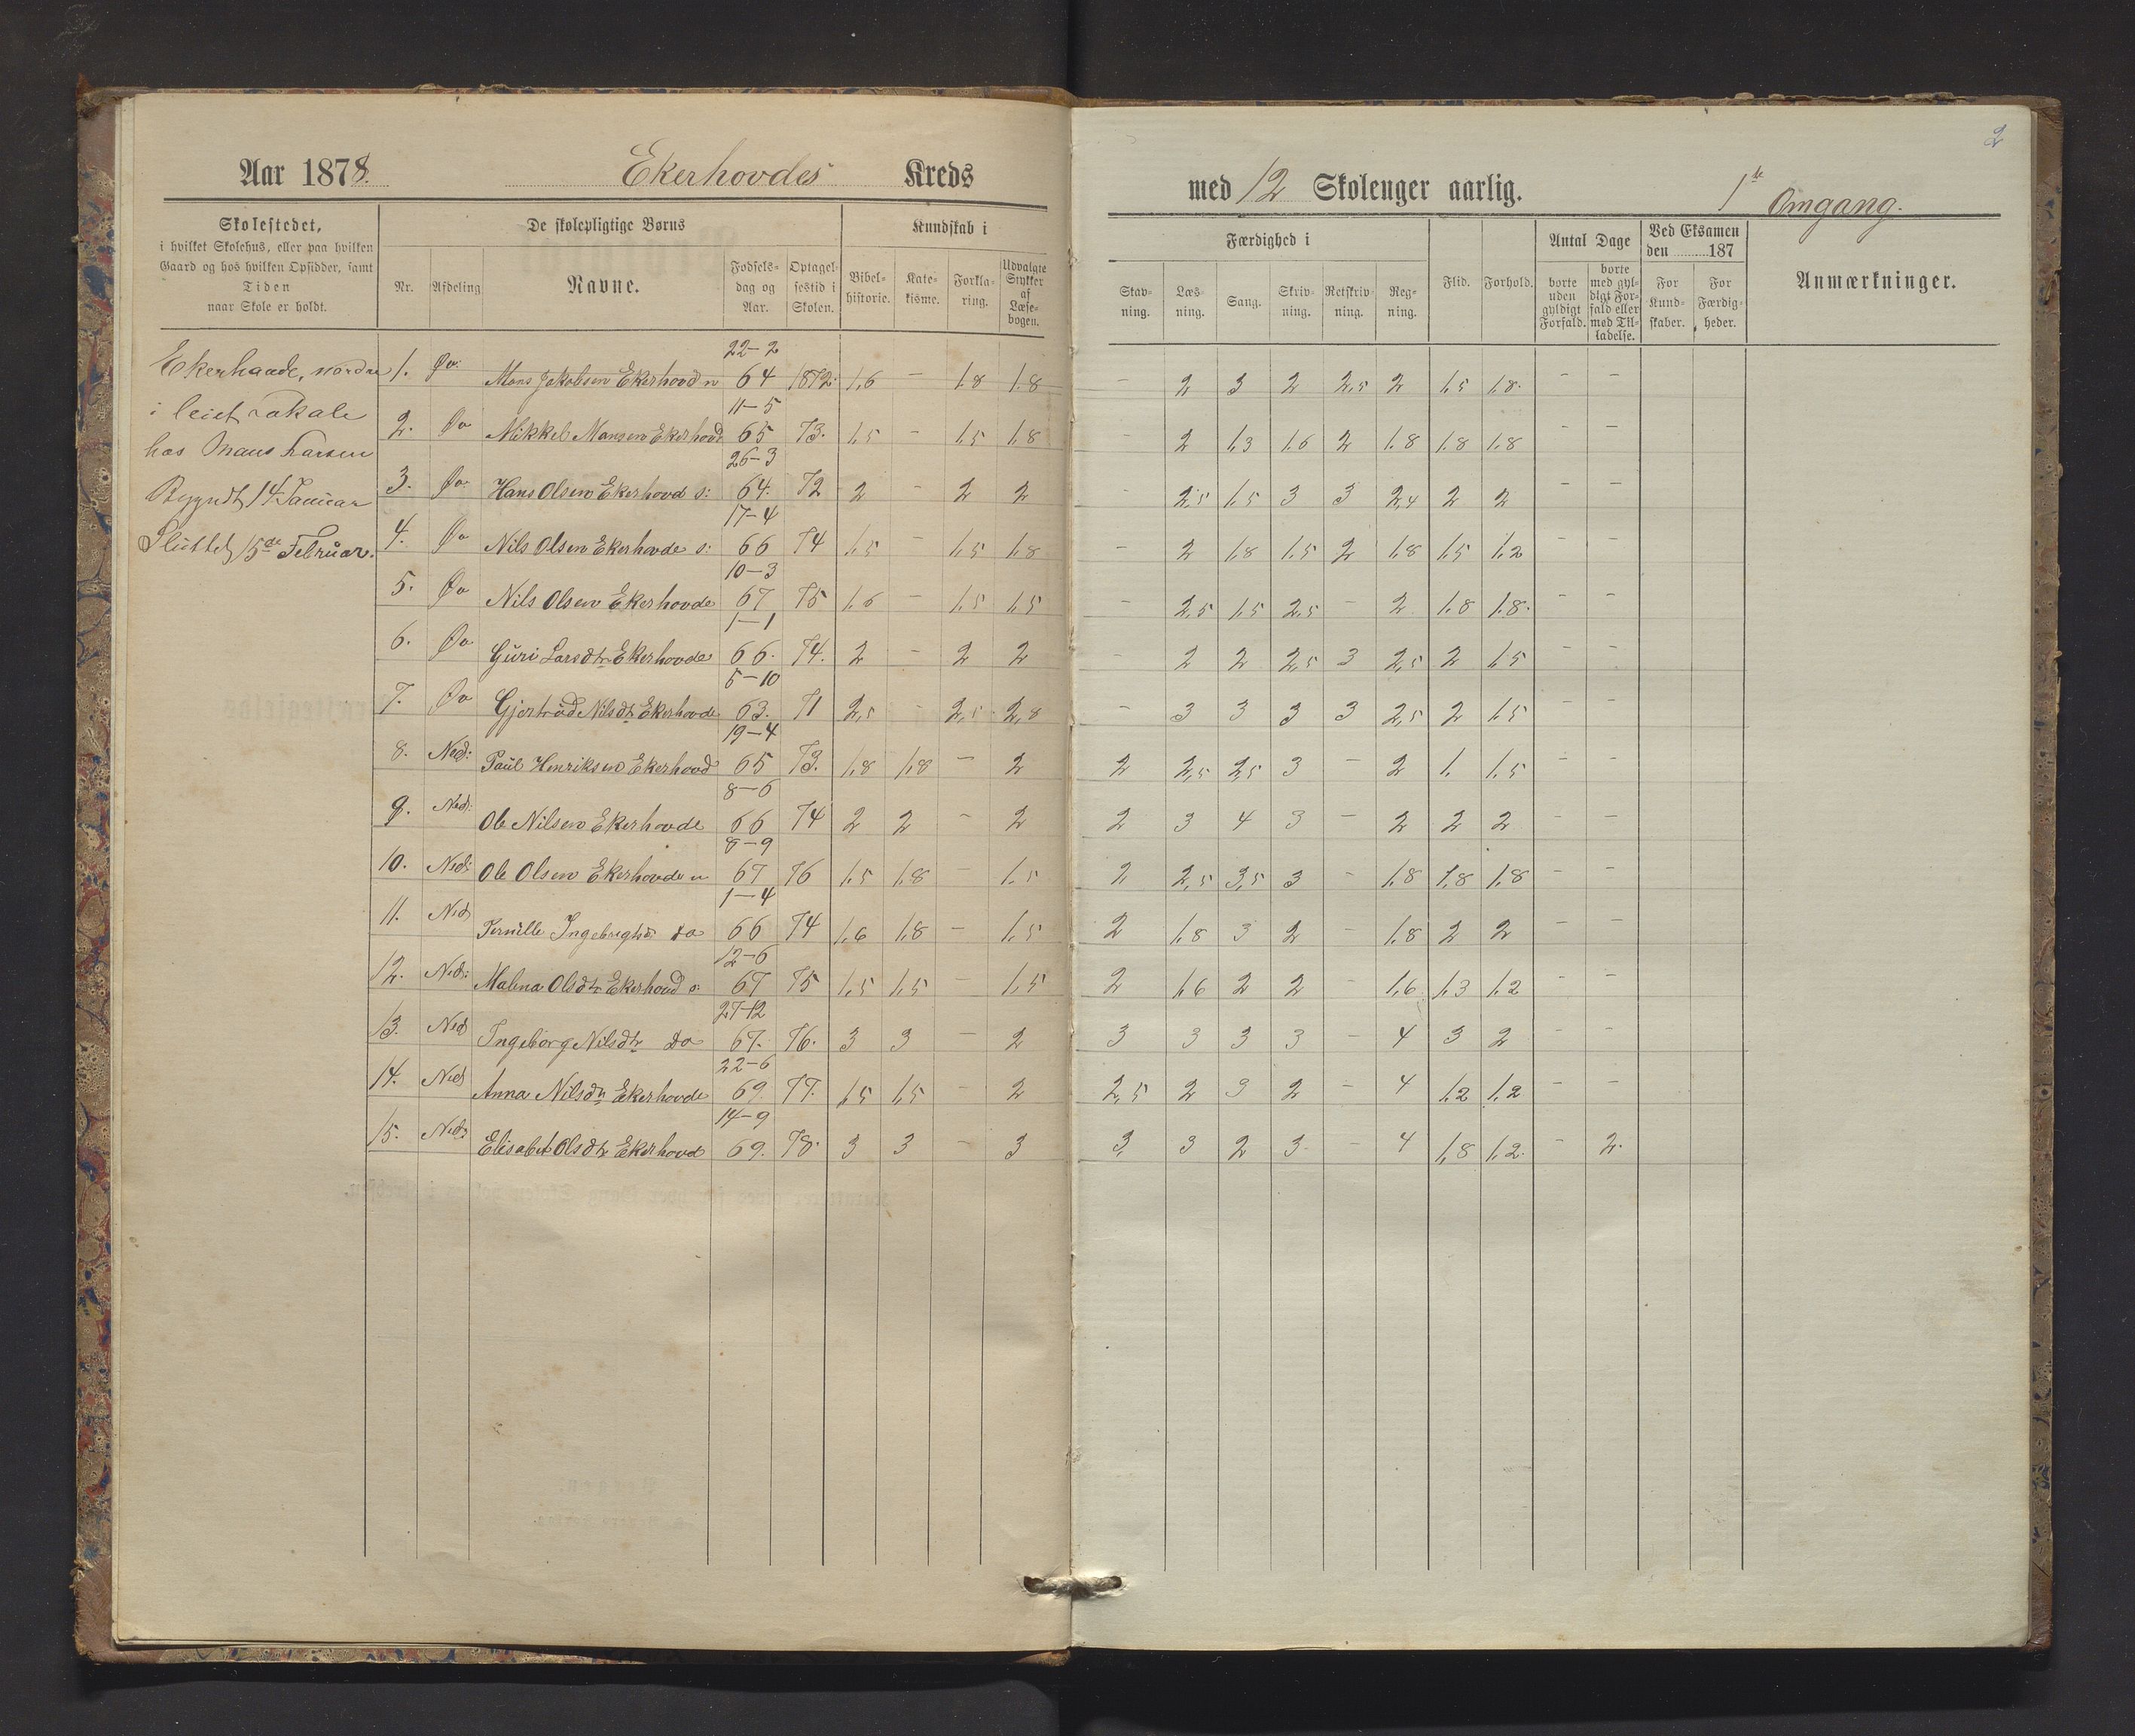 2
Aar 1878. Ekerhovdes Kreds med 12 Skolenger aarlig. 1ste Omgang.
Skolestedet,
i hvilket Skolehus, eller paa hvilken
Gaard og hos hvilken Opsidder, samt
Tiden
naar Skole er holdt.
De skolepligtige Børns
Nr. Afdeling Navne. Fødselsdag og Aar. Optagelsestid i Skolen.
Kundskab i
Bibelhistorie. Katekisme. Forklaring. Udvalgte Stykker af Læsebogen.
Færdighed i
Stavning. Læsning. Sang. Skrivning. Retskrivning. Regning.
Flid. Forhold.
Antal Dage
borte uden gyldigt Forfald. borte med gyldigt Forfald eller med Tilladelse.
Ved Eksamen
den 187
For Kundskaber. For Færdigheder.
Anmærkninger.
Ekerhaade, nordre
i leiet Lokale
hos Mans Larsen
Begyndt 14 Januar
Sluttet 15de Februar.
1. Øv. Mons Jakobsen Ekerhovd n 22-2 64 1872. 1,6 - 1,8 1,8 - 2 3 2 2,5 2 1,5 1,8. - -
2. Øv Mikkel Mansen Ekerhovd 11-5 65 73. 1,5 - 1,5 1,8 - 2 1,3 1,6 2 1,8 1,8 1,8 - -
3. Øv. Hans Olsen Ekerhovd s: 26-3 64. 72 2 - 2 2 - 2,5 1,5 3 3 2,4 2 2 - -
4. Øv Nils Olsen Ekerhovde s: 17-4 66 74 1,5 - 1,5 1,8 - 2 1,8 1,5 2 1,8 1,5 1,2 - -
5. Øv Nils Olsen Ekerhovde 10-3 67 75 1,6 - 1,5 1,5 - 2,5 1,5 2,5 - 2 1,8 1,8. - -
6. Øv Guri Larsdtr Ekerhovde 1-1 66. 74. 2 - 2 2 - 2 2 2,5 3 2,5 2 1,5 - -
7. Øv Gjertrud Nilsdtr Ekerhovde 5-10 63. 71 2,5 - 2,5 2,8 - 3 3 3 3 2,5 2 1,5 - -
8. Ned: Paul Henriksen Ekerhovd 19-4 65 73. 1,8 1,8 - 2 2 2,5 2,5 3 - 2 1. 1,5 - -
9. Ned: Ole Nilsen Ekerhovde 8-6 66 74 2 2 - 2 2 3 4 3 - 2 2 2 - -
10. Ned: Ole Olsen Ekerhovde n 8-9 67 76 1,5 1,8 - 1,5 2 2,5 3,5 3 - 1,8 1,8 1,8 - -
11. Ned Pernille Ingebrigtsd do 1-4 66 74 1,6 1,8 - 1,5 2 1,8 3 2 - 1,8 2 2 - -
12. Ned: Malena Olsdtr Ekerhovd s: 12-6 67 75 1,5 1,5 - 1,5 2 1,6 2 2 - 1,6 1,3 1,2 - -
13. Ned Ingeborg Nilsdtr do 27-12 67. 76. 3 3 - 2 3 3 3 3 - 4 3 2 - -
14. Ned Anna Nilsdtr Ekerhovde 22-6 69. 77. 1,5 1,5 - 2 2,5 2 3 2 - 4 1,2 1,2 - -
15. Ned: Elisabet Olsdtr Ekerhovd 14-9 69. 78. 3 3 - 3 3 3 2 3 - 4 1,8 1,2. - 2.